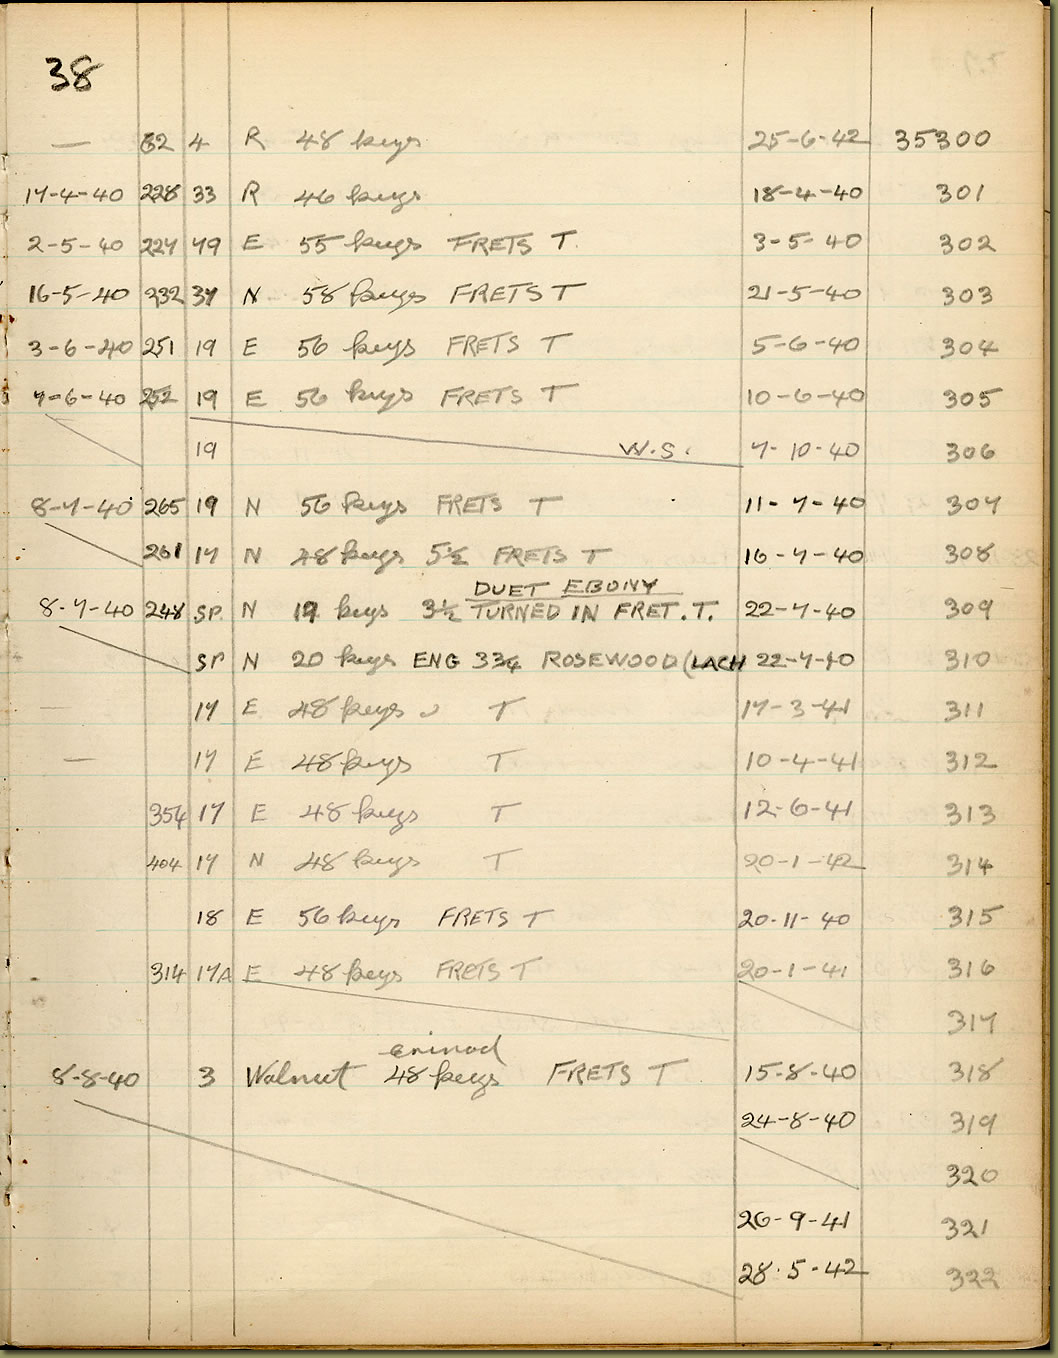 38
— 62 4 R 48 keys 25-6-42 35300
17-4-40 228 33 R 46 keys 18-4-40 301
2-5-40 227 79 E 55 keys FRETS T. 3-5-40 302
16-5-40 232 37 N 58 keys FRETS T 21-5-40 303
3-6-40 251 19 E 56 keys FRETS T 5-6-40 304
7-6-40 252 19 E 56 keys FRETS T 10-6-40 305
19 W.S. 7-10-40 306
8-7-40 265 19 N 56 keys FRETS T 11-7-40 307
261 17 N 48 keys 5½ FRETS T 16-7-40 308
DUET EBONY
8-7-40 248 SP. N 19 keys 3½ TURNED IN FRET. T. 22-7-40 309
SP N 20 keys ENG 33/4 ROSEWOOD (LACH 22-7-40 310
17 E 48 keys T 17-3-41 311
— 17 E 48 keys T 10-4-41 312
354 17 E 48 keys T 12-6-41 313
404 17 N 48 keys T 20-1-42 314
18 E 56 keys FRETS T 20-11-40 315
314 17A E 48 keys FRETS T 20-1-41 316
317
8-8-40 3 Walnut 48 keys FRETS T 15-8-40 318
24-8-40 319
320
26-9-41 321
28-5-42 322